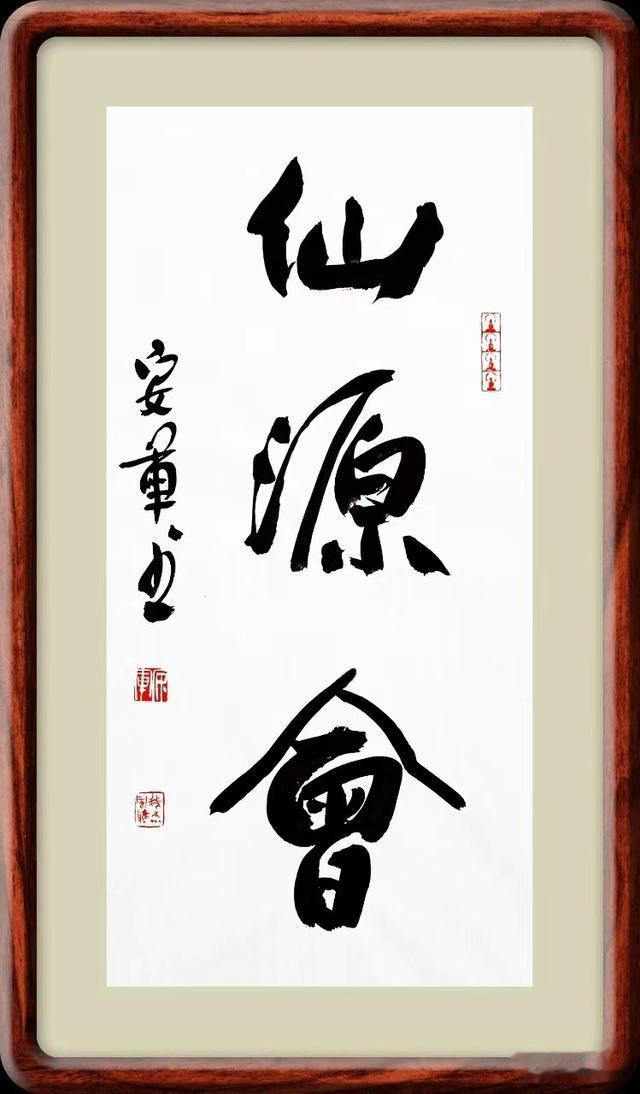 仙源會
安華书